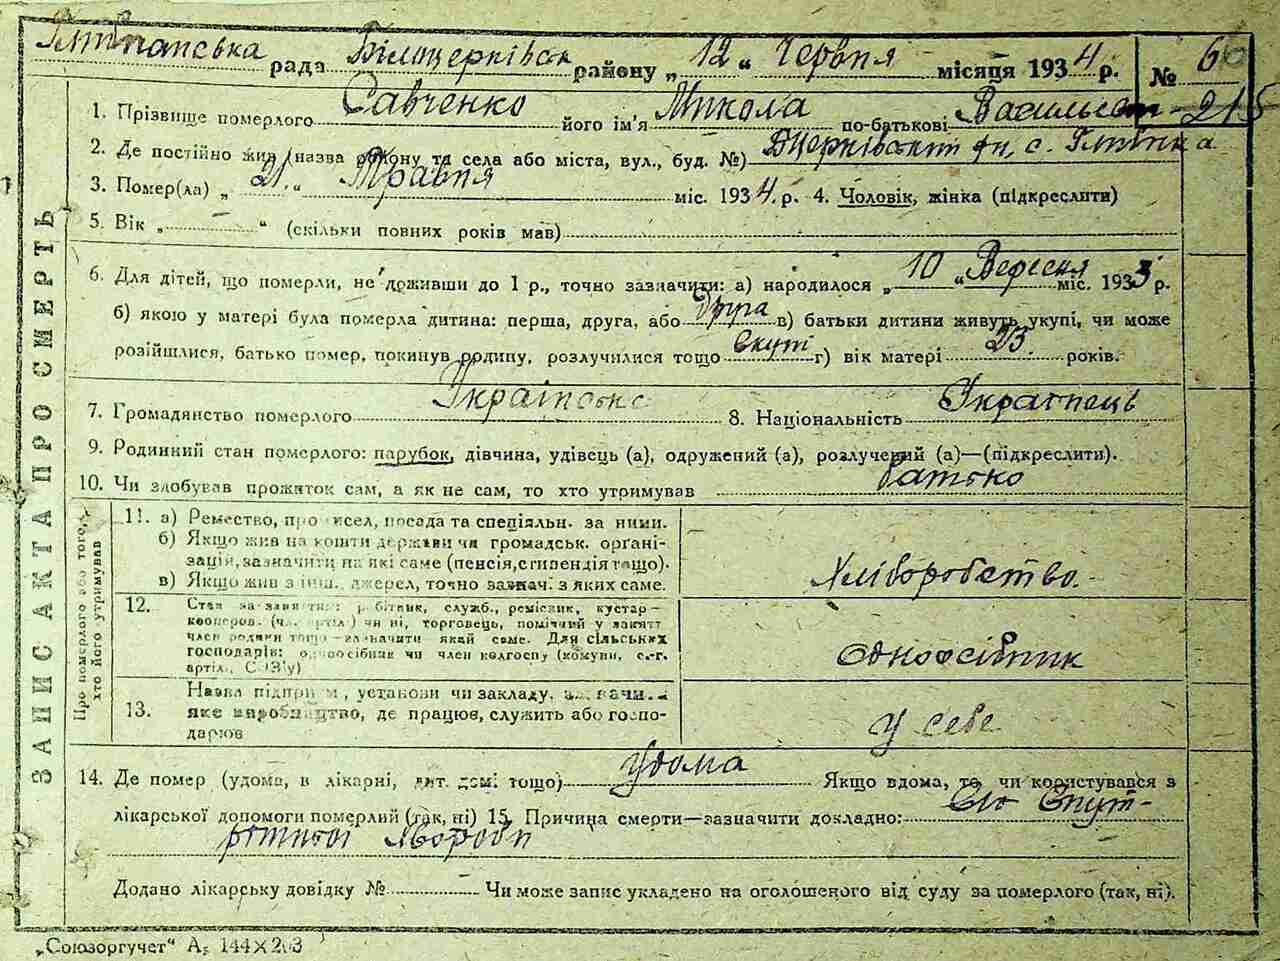 Глибчанська рада Білоцерківськ району „ 12 “ Червня місяця 1934 р. № 66
1. Прізвище померлого Савченко його ім'я Микола по-батькові Васильов 215
2. Де постійно жив (назва району та села або міста, вул., буд. №) Бцерківськ с.
3. Помер(ла) „ 21 “ Травня міс. 1934 р. 4. Чоловік, жінка (підкреслити)
5. Вік „ “ (скільки повних років мав)
6. Для дітей, що померли, не доживши до 1 р., точно зазначити: а) народилося „ 10 „ Вересня міс. 1933 р.
б) якою у матері була померла дитина: перша, друга, або друга в) батьки дитини живуть укупі, чи може
розійшлися, батько помер, покинув родину, розлучилися тощо вкупі г) вік матері 23. років.
7. Громадянство померлого Українське 8. Національність Українець
9. Родинний стан померлого: парубок, дівчина, удівець (а), одружений (а), розлучений (а)—(підкреслити).
10. Чи здобував прожиток сам, а як не сам, то хто утримував батько
ЗАПИС АКТА ПРО СМЕРТЬ
Про померлого або того, хто його утримував
11. а) Ремество, промисел, посада та спеціяльн. за ними.
б) Якщо жив на кошти держави чи громадськ. органі-
зація, зазначити на які саме (пенсія, стипендія тощо).
в) Якщо жив з інш. джерел, точно зазнач. з яких саме.
Хліборобство.
12. Стан за заняттям: робітник, служб., ремісник, кустар—
кооперов. (чл. артіл.) чи ні, торговець, помічний у занятт
член родини тощо—зазначити який саме. Для сільських
господарів: одноосібник чи член колгоспу (комуни, с.-г.
артіл., СОЗ'у)
Одноосібник
13. Назва підприєм., установи чи закладу, зазначи.
яке виробництво, де працює, служить або госпо-
дарює
У себе
14. Де помер (удома, в лікарні, дит. домі тощо) Удома Якщо вдома, то чи користувався з
лікарської допомоги померлий (так, ні) 15. Причина смерти—зазначити докладно:
хвороби
Додано лікарську довідку № Чи може запис укладено на оголошеного від суду за померлого (так, ні).
„Союзоргучет“ А₅ 144×203